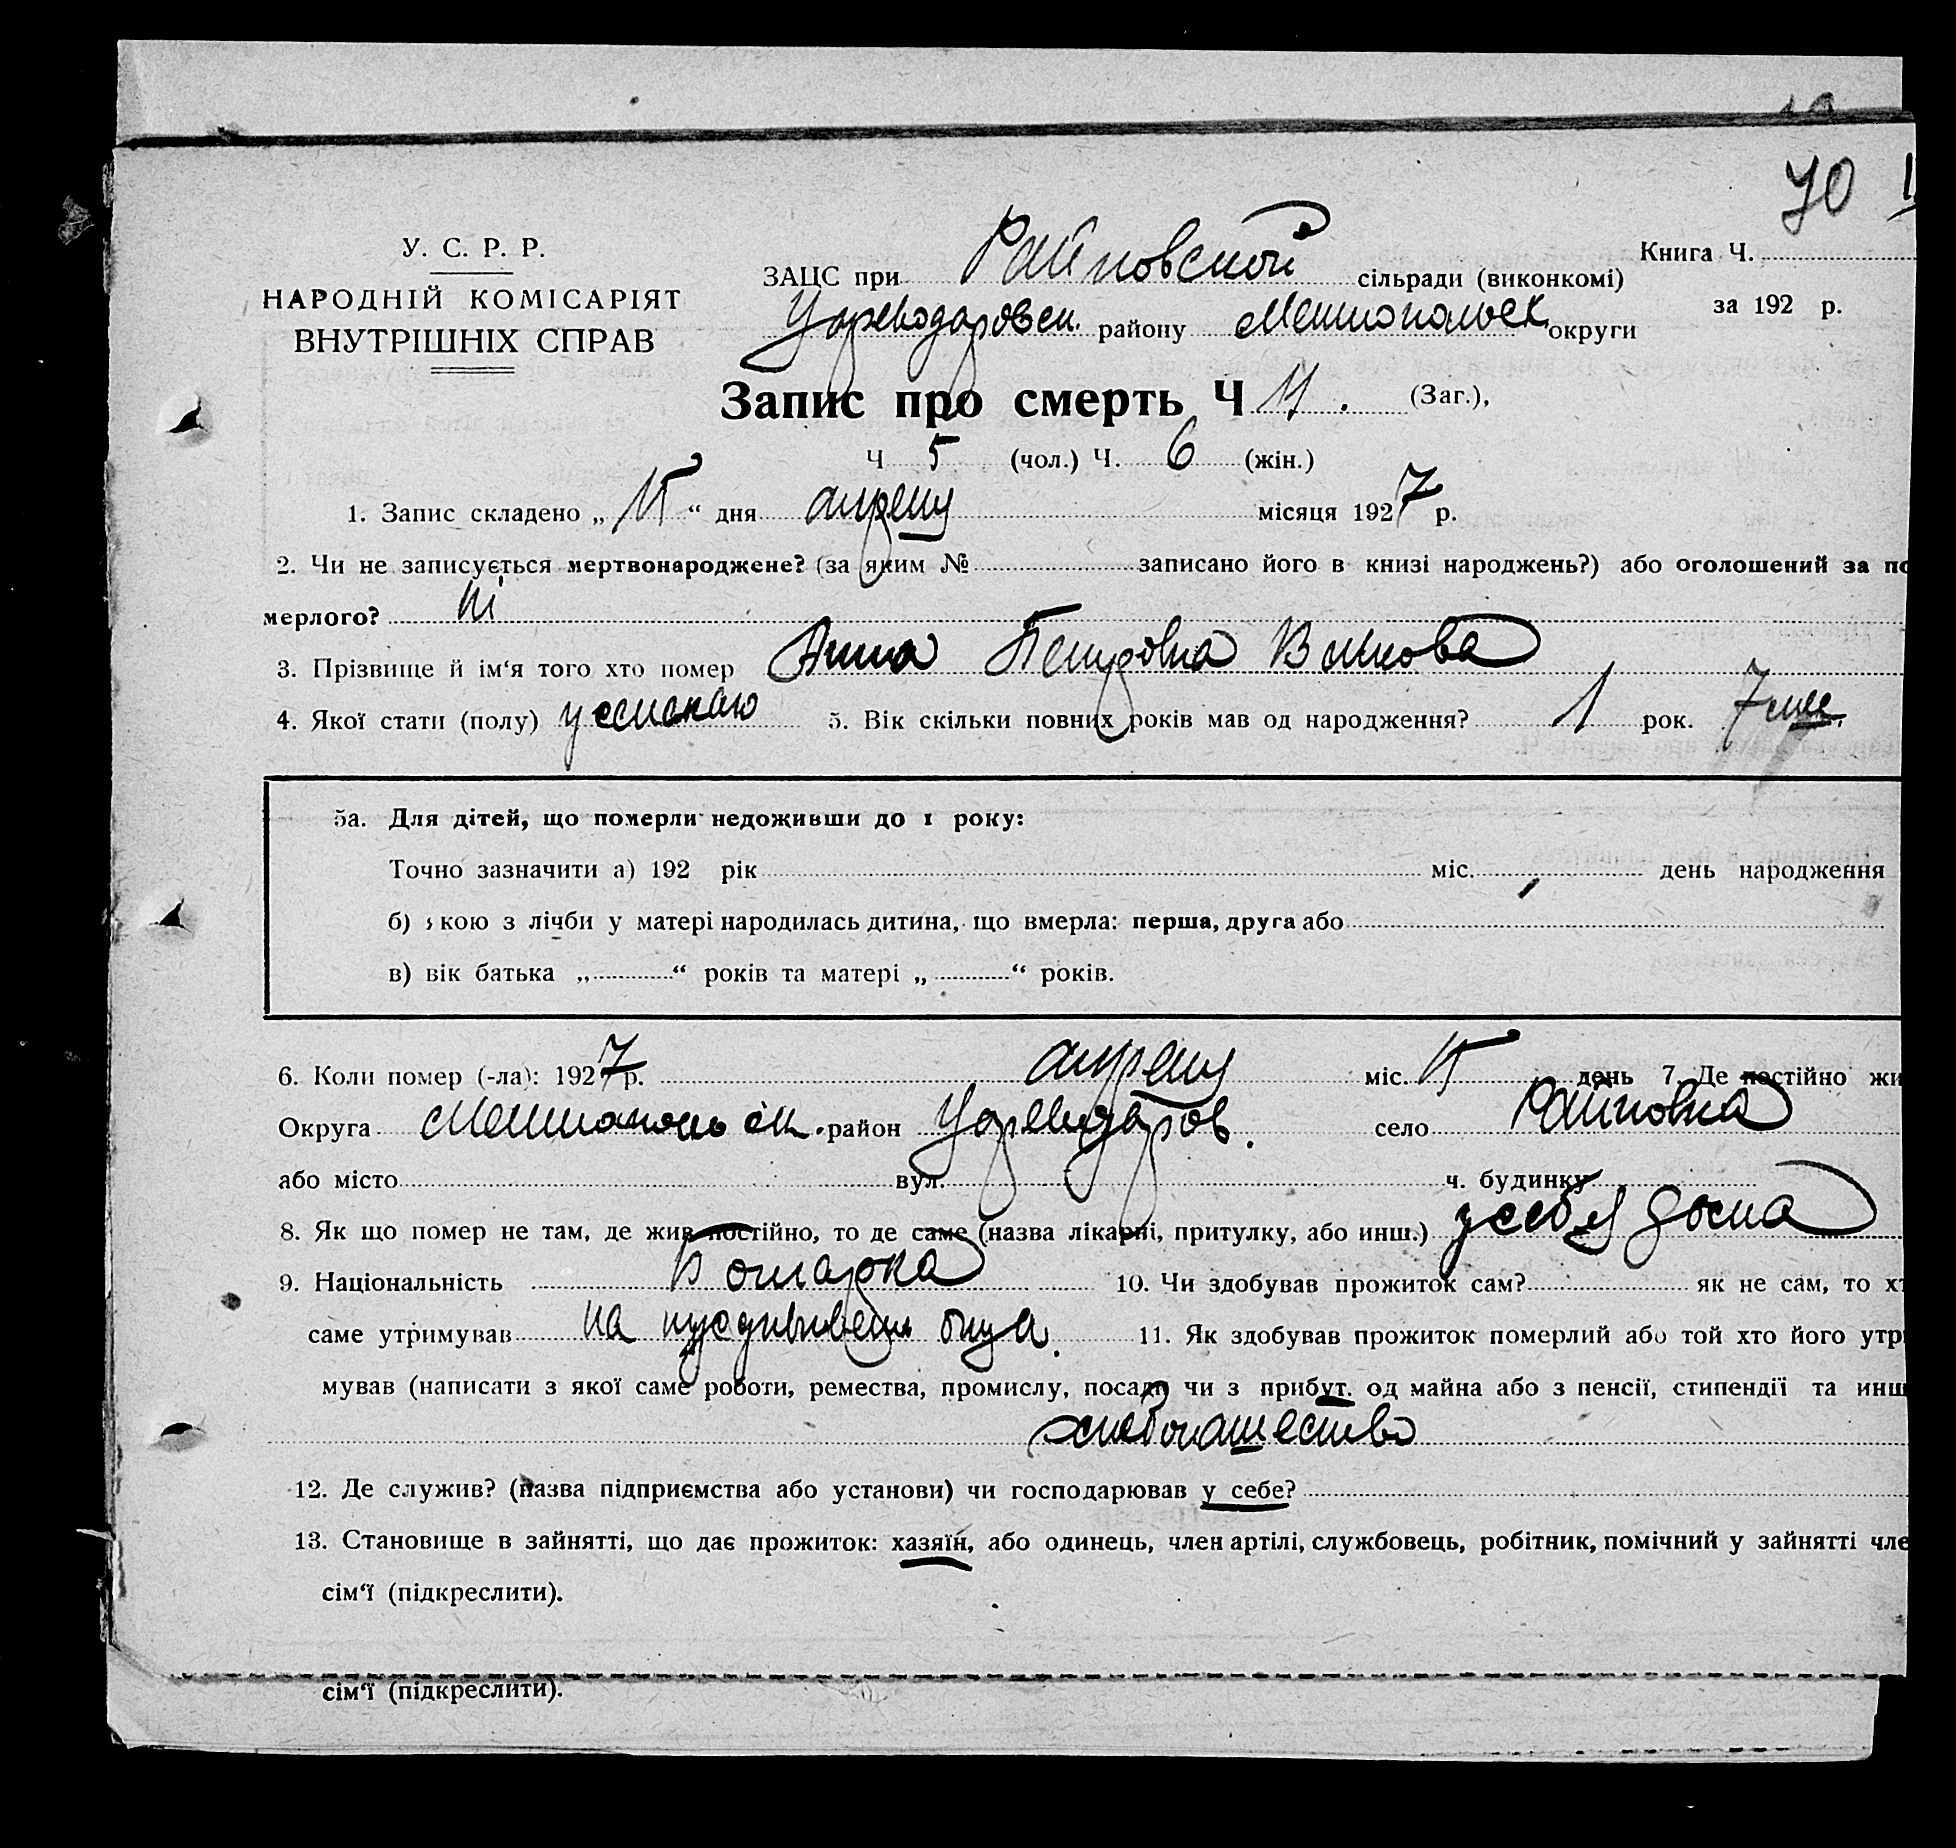 70
У. С. Р. Р.
НАРОДНІЙ КОМІСАРІЯТ
ВНУТРІШНІХ СПРАВ
ЗАЦС при Райновской сільради (виконкомі)
Книга Ч.
Цареводаровск. району Мелитопольск. округи
за 192 р.
Запис про смерть Ч 11. (Заг.),
Ч 5 (чол.) Ч. 6 (жін.)
1. Запис складено „15“ дня апреля місяця 1927 р.
2. Чи не записується мертвонароджене? (за яким № записано його в книзі народжень?) або оголошений за по
мерлого? ні
3. Прізвище й ім‘я того хто помер Анна Петровна Волкова
4. Якої стати (полу) женская 5. Вік скільки повних років мав од народження? 1 рок. 7 мес.
5а. Для дітей, що померли недоживши до 1 року:
Точно зазначити а) 192 рік міс. день народження
б) якою з лічби у матері народилась дитина, що вмерла: перша, друга або
в) вік батька „ “ років та матері „ “ років.
6. Коли помер (-ла): 1927 р. апреля міс. 15 день 7. Де постійно жи
Округа Мелитопольск. район Цареводаров. село Райновка
або місто вул. ч. будинку
8. Як що помер не там, де жив постійно, то де саме (назва лікарні, притулку, або инш.) у себя дома
9. Національність Болгарка 10. Чи здобував прожиток сам? як не сам, то хт
саме утримував на иждивении отца. 11. Як здобував прожиток померлий або той хто його утр
мував (написати з якої саме роботи, ремества, промислу, посади чи з прибут. од майна або з пенсії, стипендії та инш
хлебопашество
12. Де служив? (назва підприємства або установи) чи господарював у себе?
13. Становище в зайнятті, що дає прожиток: хазяїн, або одинець, член артілі, службовець, робітник, помічний у зайнятті чле
сім‘ї (підкреслити).
сім‘ї (підкреслити).